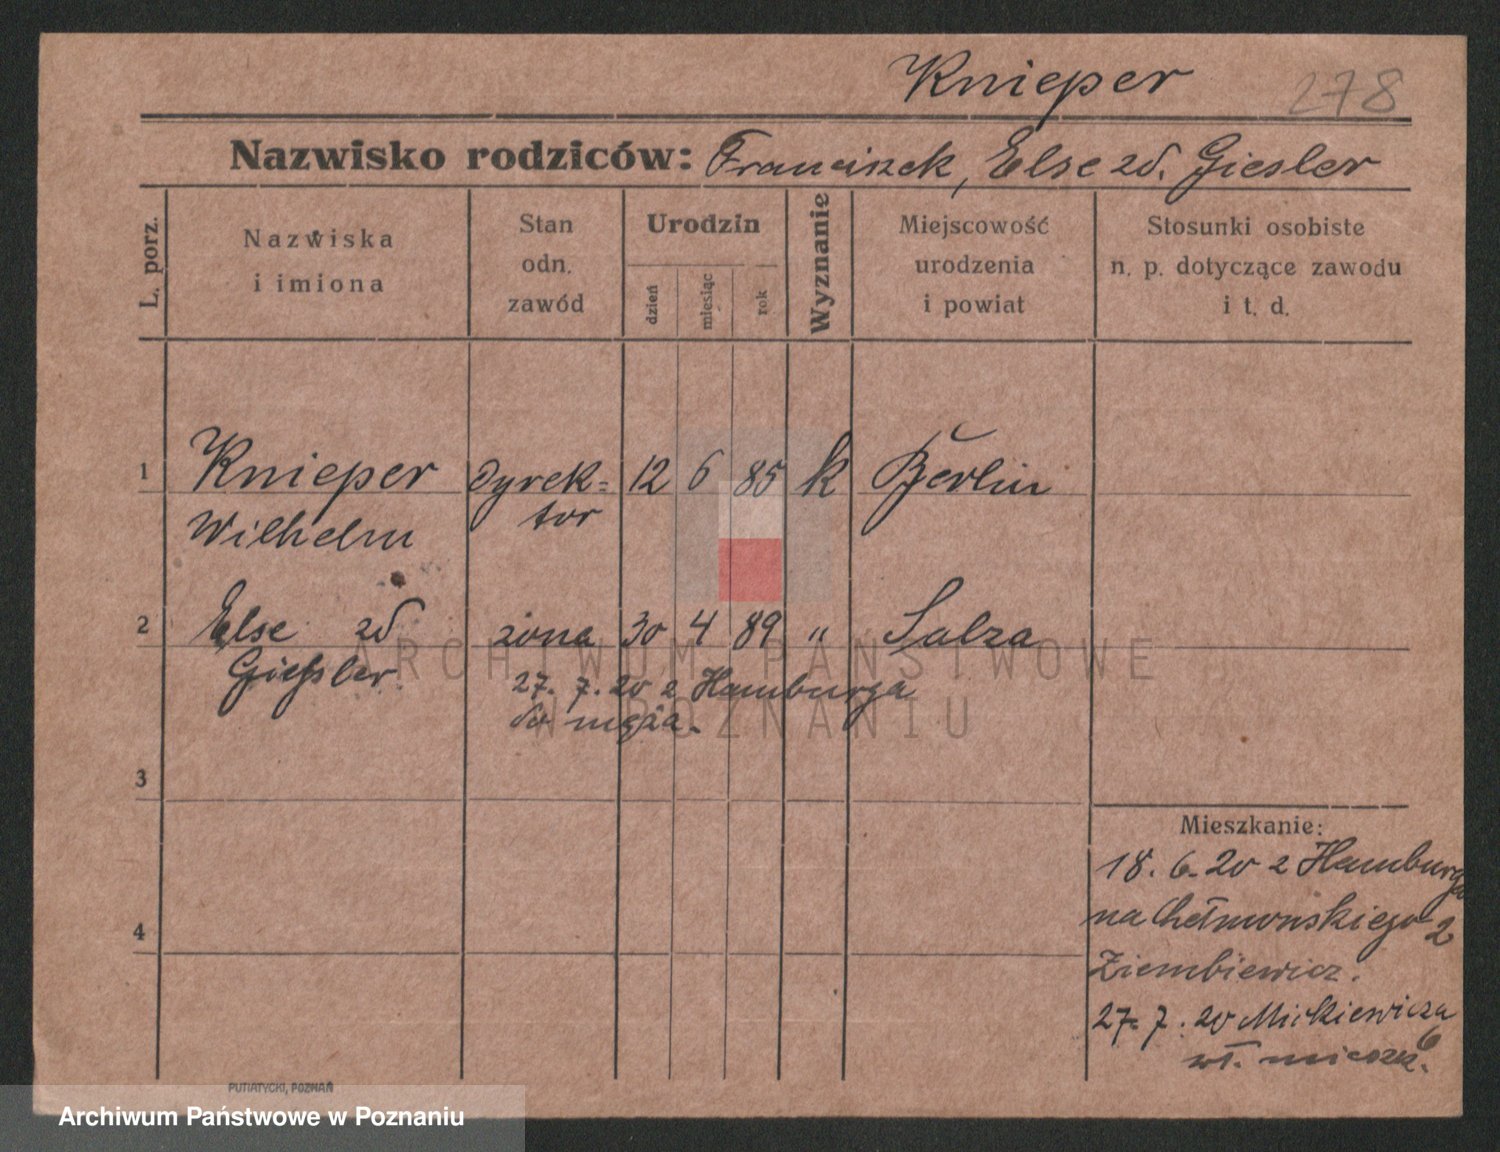 Knieper 278
Nazwisko rodziców: Franciszek, Else zd. Giesler
L. porz.
Nazwiska
i imiona
Stan
odn.
zawód
Urodzin
dzień
miesiąc
rok
Wyznanie
Miejscowość
urodzenia
i powiat
Stosunki osobiste
n. p. dotyczące zawodu
i t. d.
1 Knieper dyrek= 12 6 85 k Berlin
Wilhelm tor
2 Else zd żona 30 4 89 " Salza
Gießler
27. 7. 20 z Hamburga
do męża.
3
4
Mieszkanie:
18. 6. 20 z Hamburga
na Chełmońskiego 2
Ziembiewicz.
27. 7. 20 Mickiewicza
6
wł. mieszk.
PUTIATYCKI, POZNAŃ
ARCHIWUM PAŃSTWOWE
W POZNANIU
Archiwum Państwowe w Poznaniu